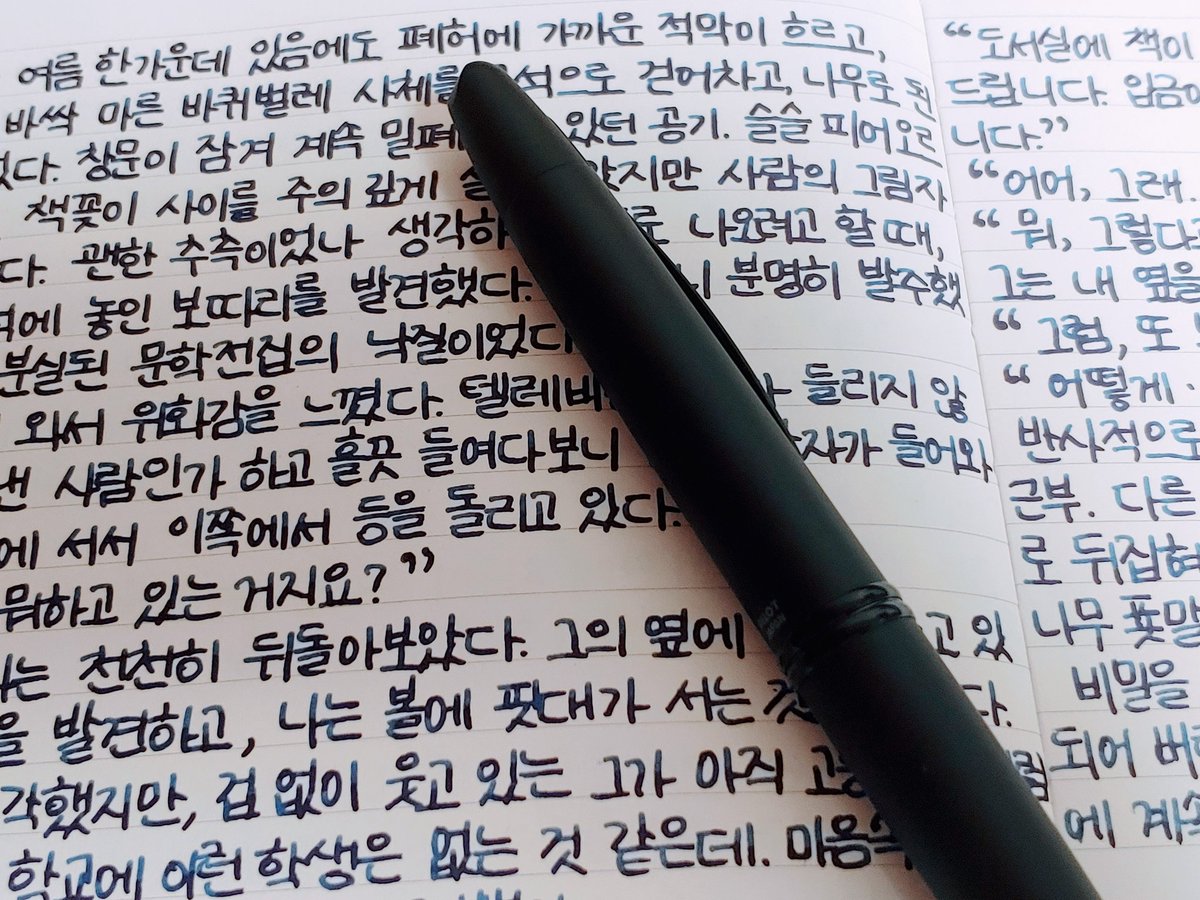 여름 한가운데 있음에도 폐허에 가까운 적막이 흐르고,
바싹 마른 바퀴벌레 사체를 구석으로 걷어차고, 나무로 된
창문이 잠겨 계속 밀폐 있던 공기. 슬슬 피어오르
책꽂이 사이를 주의 깊게 사람의 그림자
다. 괜한 추측이었나 생각하 나오려고 할 때,
놓인 보따리를 발견했다. 분명히 발주했
분실된 문학전집의 낙질이었다
와서 위화감을 느꼈다. 텔레비 들리지 않
사람인가 하고 흘끗 들여다보니 들어와
에 서서 이쪽에서 등을 돌리고 있다.
뭐하고 있는 거지요?”
는 천천히 뒤돌아보았다. 그의 옆에 고 있
을 발견하고, 나는 볼에 핏대가 서는 것 다.
각했지만, 겁 없이 웃고 있는 그가 아직
학교에 이런 학생은 없는 것 같은데. 마음속
“도서실에 책이
드립니다. 입금
니다.”
“어어, 그래.
“뭐, 그렇다
그는 내 옆을
“그럼, 또
“어떻게
반사적으로
근부. 다른
로 뒤집혀
나무 푯말
비밀을
되어 버
에 계속
PILOT